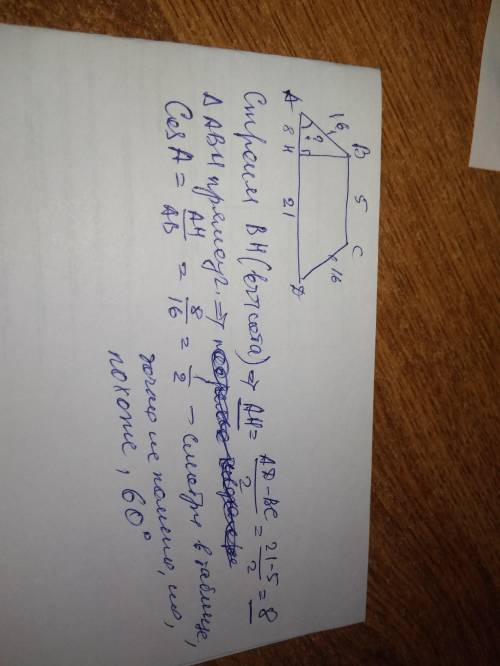 16 B 5 C
A 8 H 21 D 16
?
Строим BH (высота) ⇒ AH = AD-BC / 2 = 21-5 / 2 = 8
Δ ABH прямоуг. ⇒
Cos A = AH / AB = 8 / 16 = 1 / 2 – смотри в таблице,
точно не помню, но,
похоже, 60°